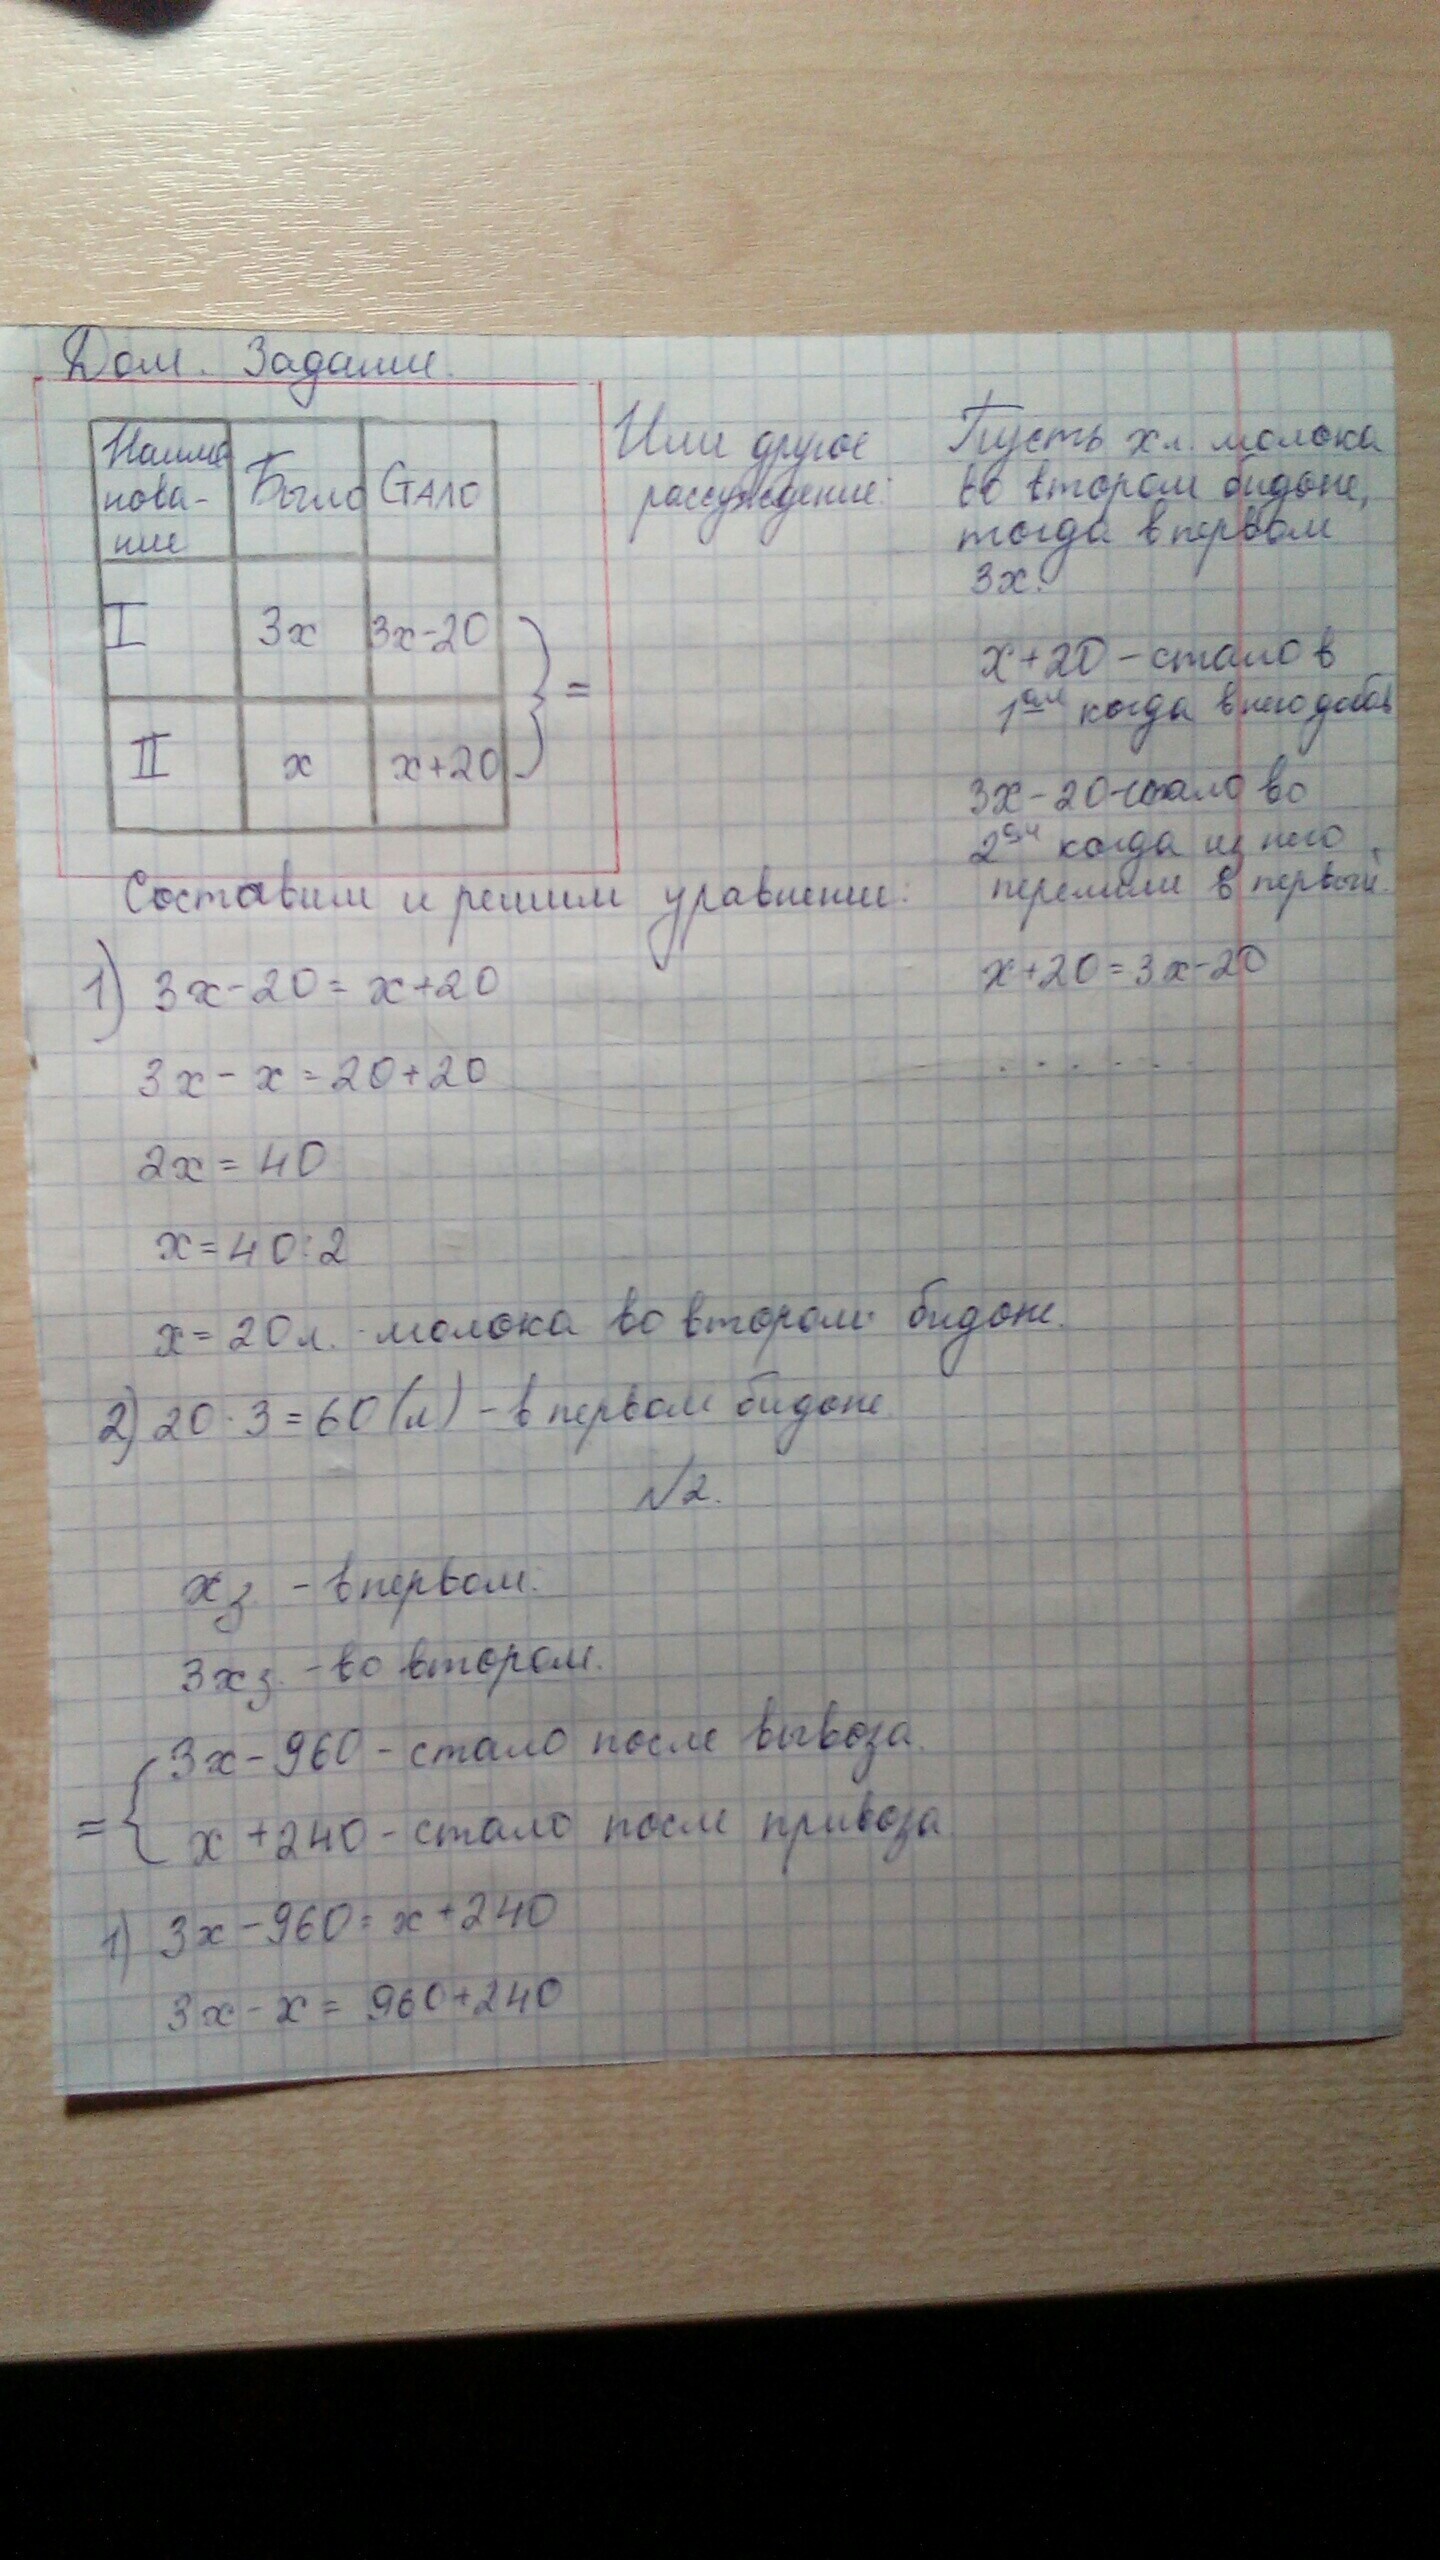 Дом. Задание.
Наиме
нова-
ние
Было
Стало
I
3х
3х-20
II
х
х+20
=
Или другое
рассуждение:
Пусть х л. молока
во втором бидоне,
тогда в первом
3х.
х+20 - стало в
1ом когда в него добав
3х-20-стало во
2ом когда из него
перелили в первый.
х+20=3х-20
. . . . . .
Составим и решим уравнение:
1) 3х-20=х+20
3х-х=20+20
2х=40
х=40:2
х=20л. молока во втором бидоне.
2) 20·3=60(л) - в первом бидоне
№2.
х з. - в первом.
3х з. - во втором.
3х-960 - стало после вывоза.
= { х+240 - стало после привоза
1) 3х-960=х+240
3х-х=960+240